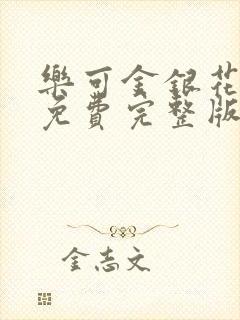 樂可金銀花
免費完整版
金志文